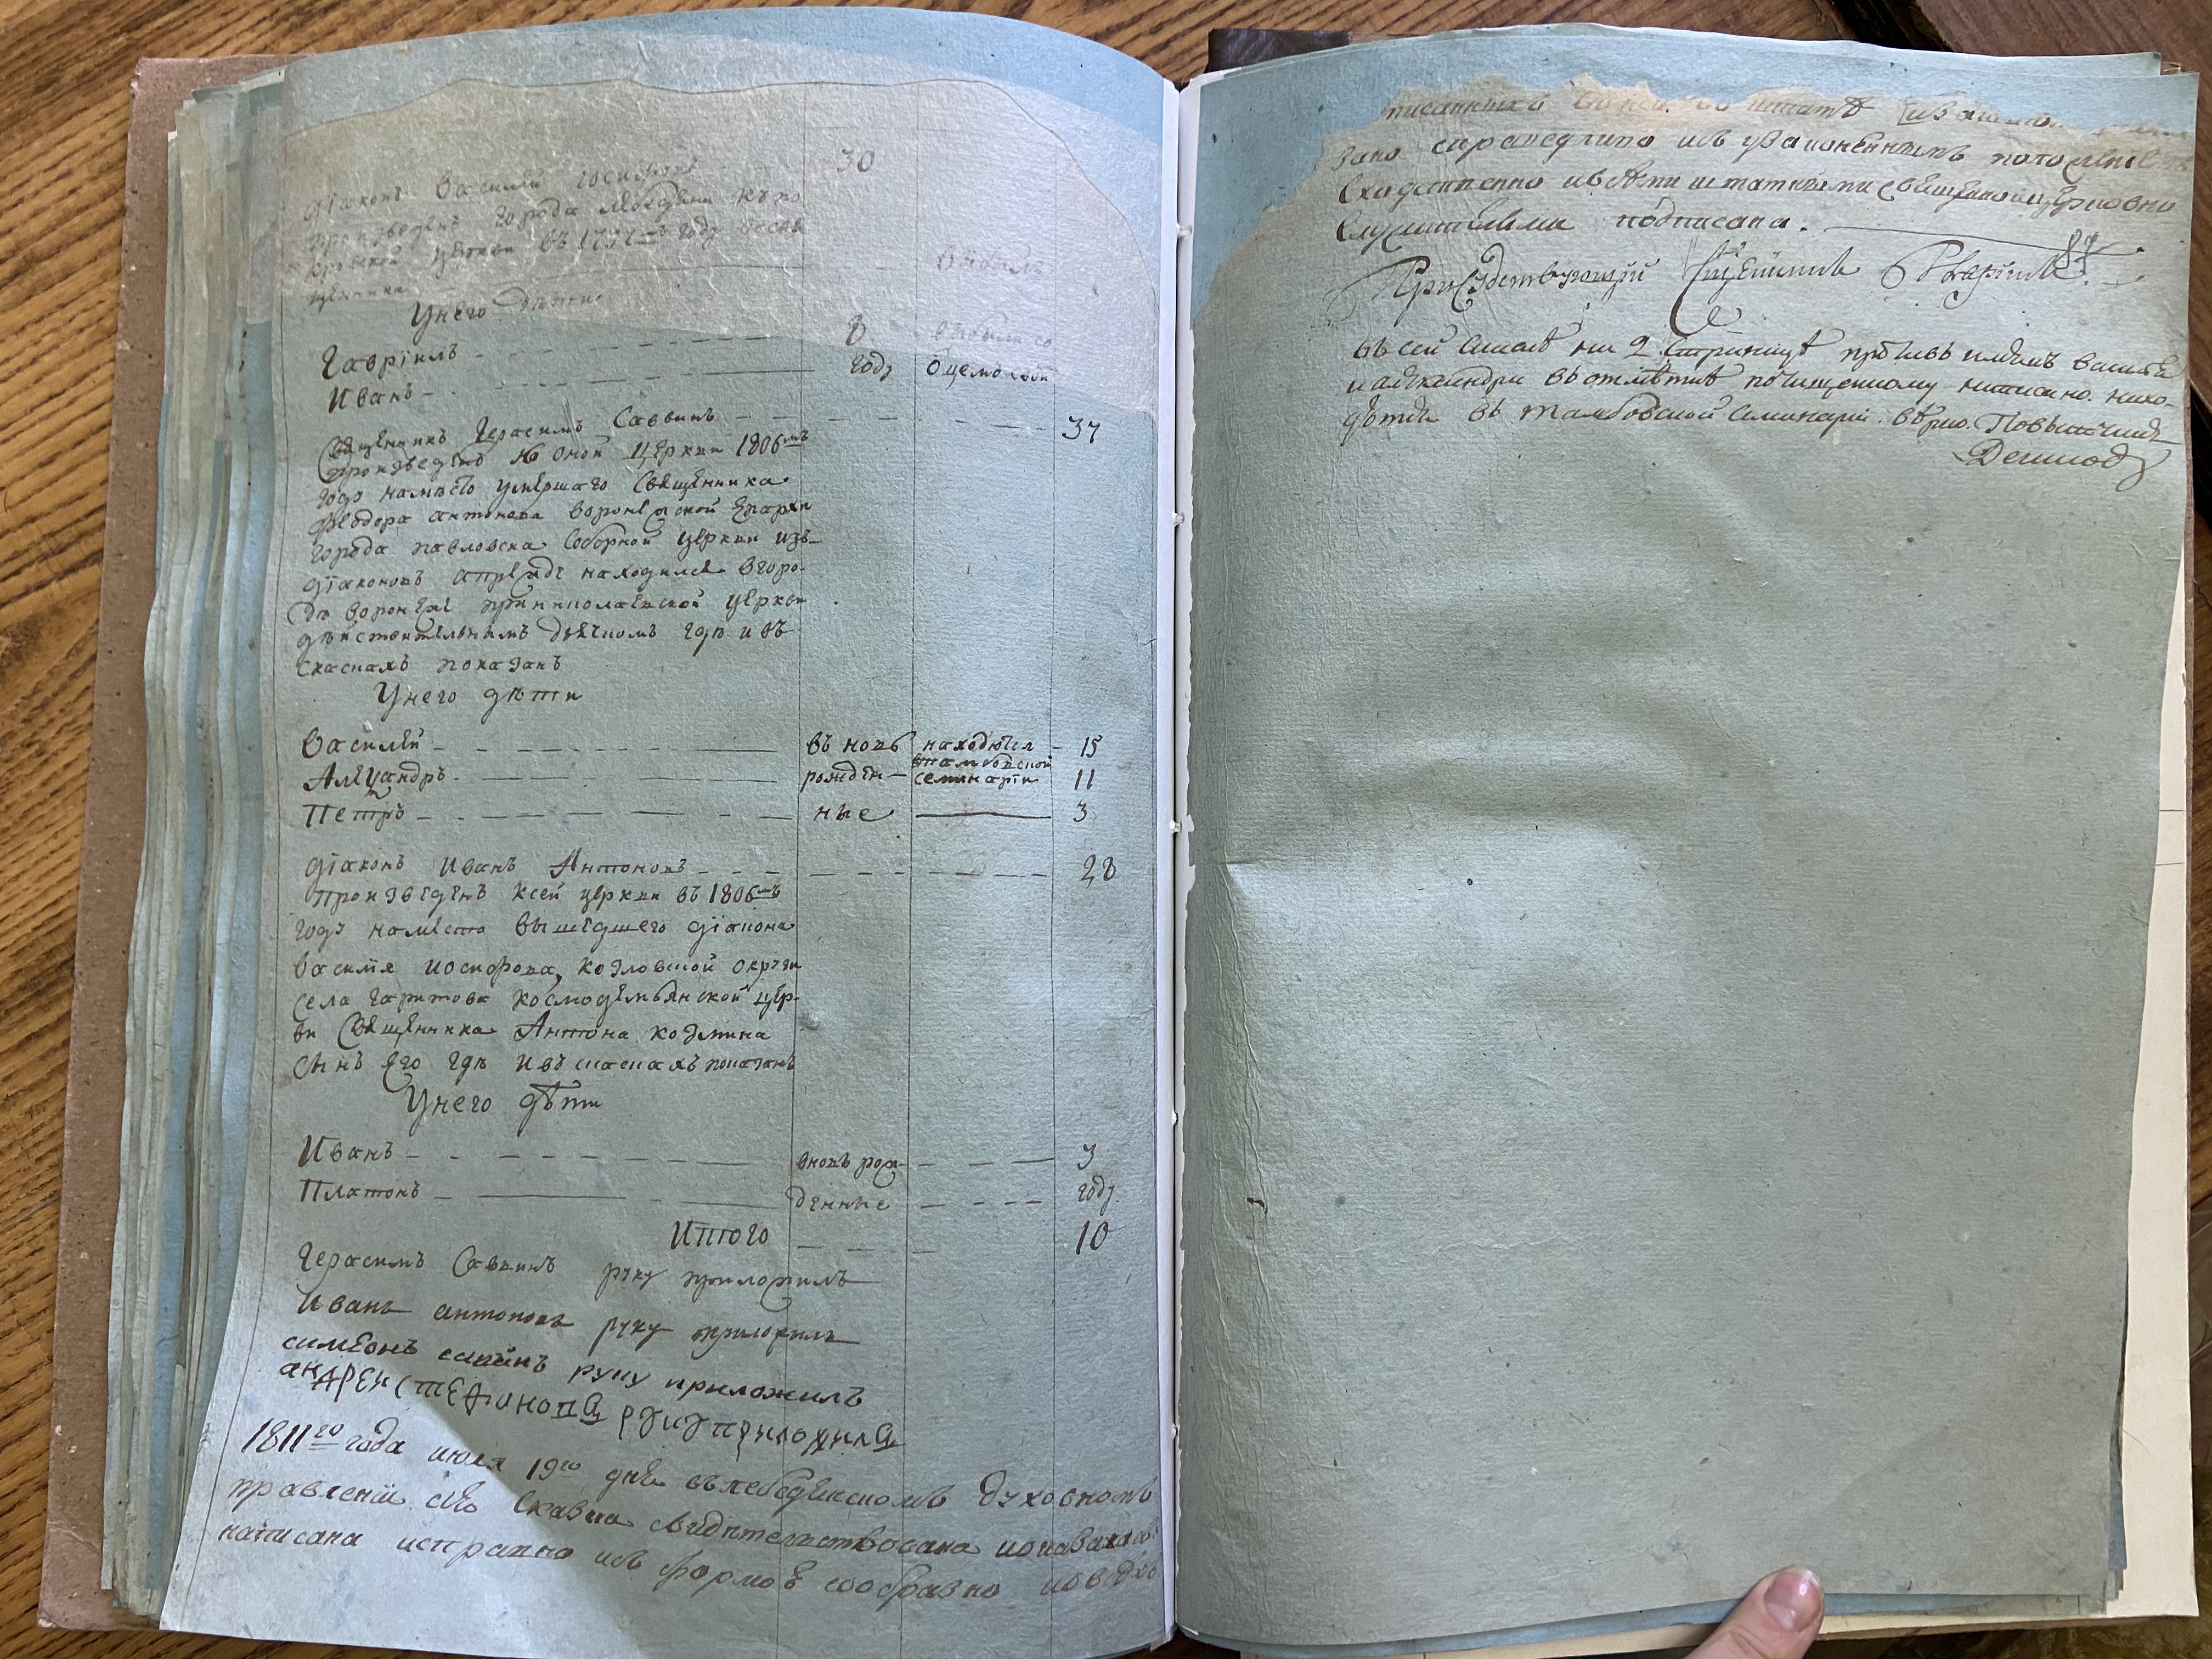 діаконъ Василей 30
произведенъ города Лебедяни
церкви въ году
У него дѣти
Гавріилъ 8
Иванъ году
Священникъ Герасимъ Саввинъ 37
произведенъ ко оной церкви 1806мъ
году наместо умершаго священника
Феодора Антонова Воронежской Епархіи
города Павловска Соборной церкви изъ
діаконовъ а прежде находился в горо-
де Воронеже при николаевской церкви
действительнымъ дьячкомъ где и въ
скаскахъ показанъ
У него дети
Василей въ новь находются 15
Александръ рожден- в тамбовской семинаріи 11
Петръ ные 3
діаконъ Иванъ Антоновъ 28
произведенъ к сей церкви въ 1806мъ
году наместо вышедшего діакона
Василія Иосифова, козловской округи
села Гаритова космодемьянской цер-
ви священника Антона козмина
сынъ его где и въ скаскахъ показанъ
У него дѣти
Иванъ вновь рож- 3
Платонъ денные году
Итого 10
Герасимъ Саввинъ руку приложилъ
Иванъ антоновъ руку приложилъ
симеонъ саввинъ руку приложилъ
андреи стефановъ руку приложилъ
1811го года июля 19го дня въ лебедянскомъ Духовномъ
правленіи сія скаска свидетельствована и оказалась
написана исправно и съ формою сообразно и о всехъ
писанныхъ
зано справедливо и съ узаконеніемъ
сходственно и всѣми штатными священноицерковно
служительми подписана.
87
Присудствующій Священникъ
въ сей скаске на 2 странице противъ имянъ василья
и александра въ отмѣтке по чищенному написано нахо-
дятся въ тамбовской семинаріи. вѣрно. Повытчикъ